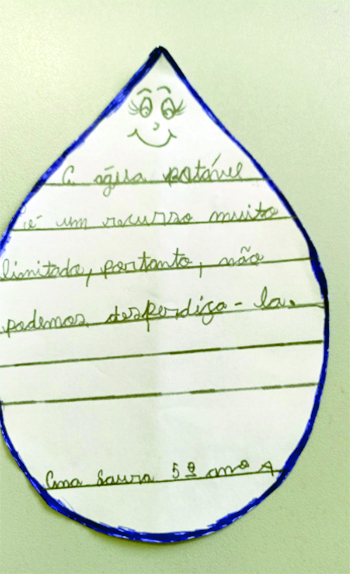 A água potável
é um recurso muito
limitado, portanto, não
podemos desperdiça-la.
Ana Laura 5º ano A